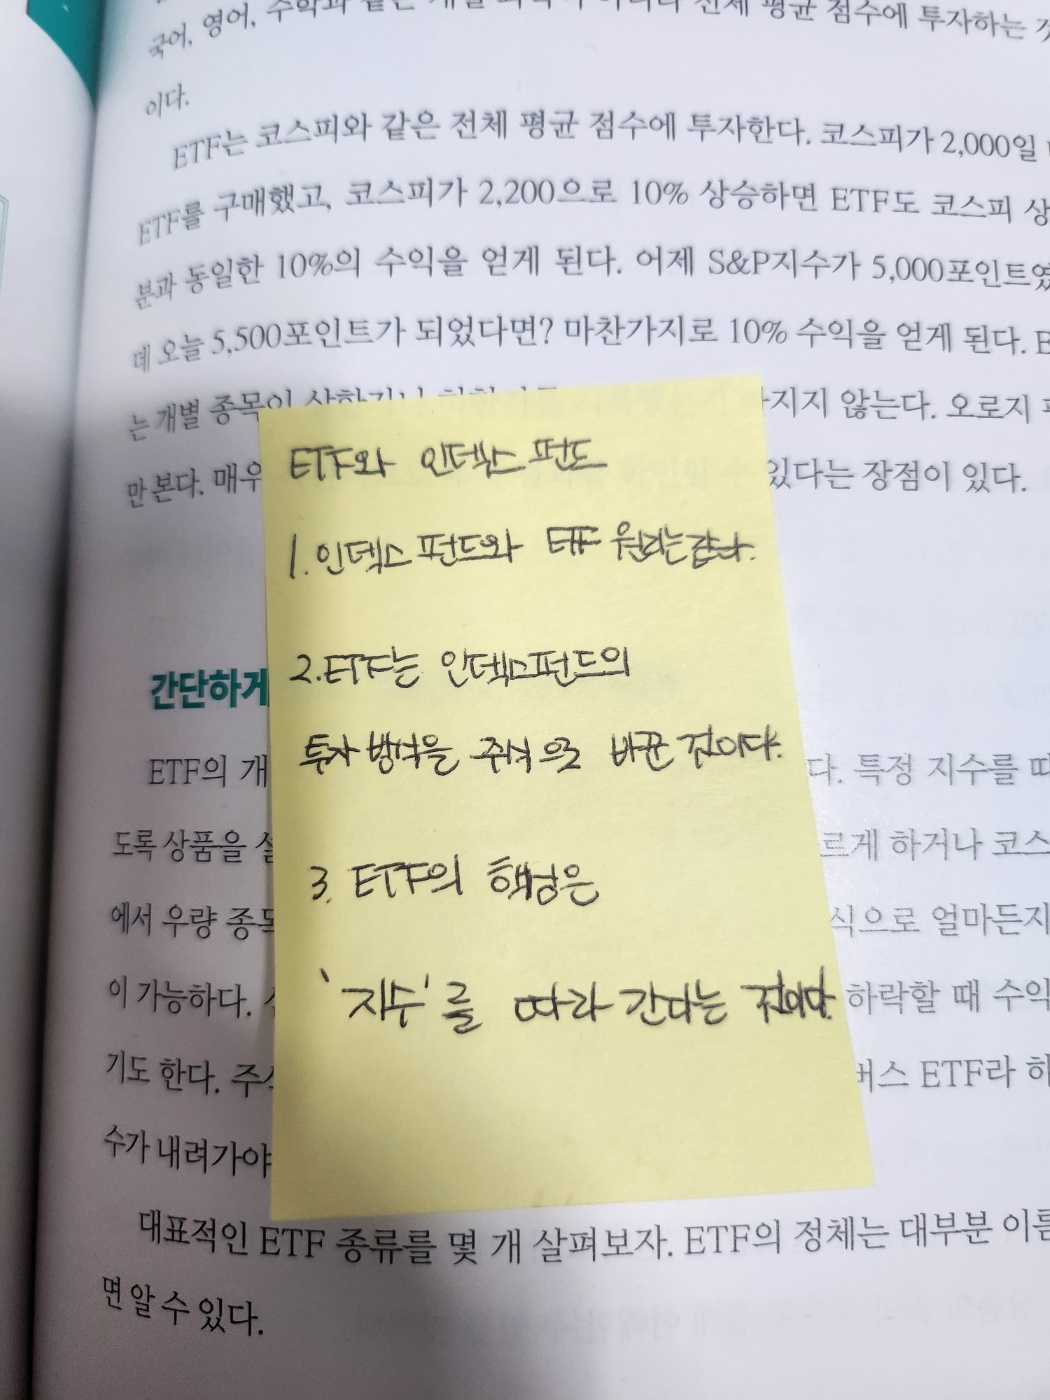 국어, 영어, 수학과 같은 개별 전체 평균 점수에 투자하는 것
이다.
ETF는 코스피와 같은 전체 평균 점수에 투자한다. 코스피가 2,000일
ETF를 구매했고, 코스피가 2,200으로 10% 상승하면 ETF도 코스피 상
분과 동일한 10%의 수익을 얻게 된다. 어제 S&P지수가 5,000포인트였
데 오늘 5,500포인트가 되었다면? 마찬가지로 10% 수익을 얻게 된다. E
는 개별 종목이 상한가나 지지 않는다. 오로지
만 본다. 매우 수 있다는 장점이 있다.
ETF와 인덱스 펀드
1. 인덱스 펀드와 ETF 원리는 같다.
2. ETF는 인덱스펀드의
투자 방식을 주식으로 바꾼 것이다.
3. ETF의 핵심은
'지수'를 따라 간다는 것이다.
간단하게
ETF의 개 다. 특정 지수를 따
도록 상품을 설 르게 하거나 코스
에서 우량 종목 식으로 얼마든지
이 가능하다. 하락할 때 수익
기도 한다. 주식 버스 ETF라 하
수가 내려가야
대표적인 ETF 종류를 몇 개 살펴보자. ETF의 정체는 대부분 이름
면 알 수 있다.